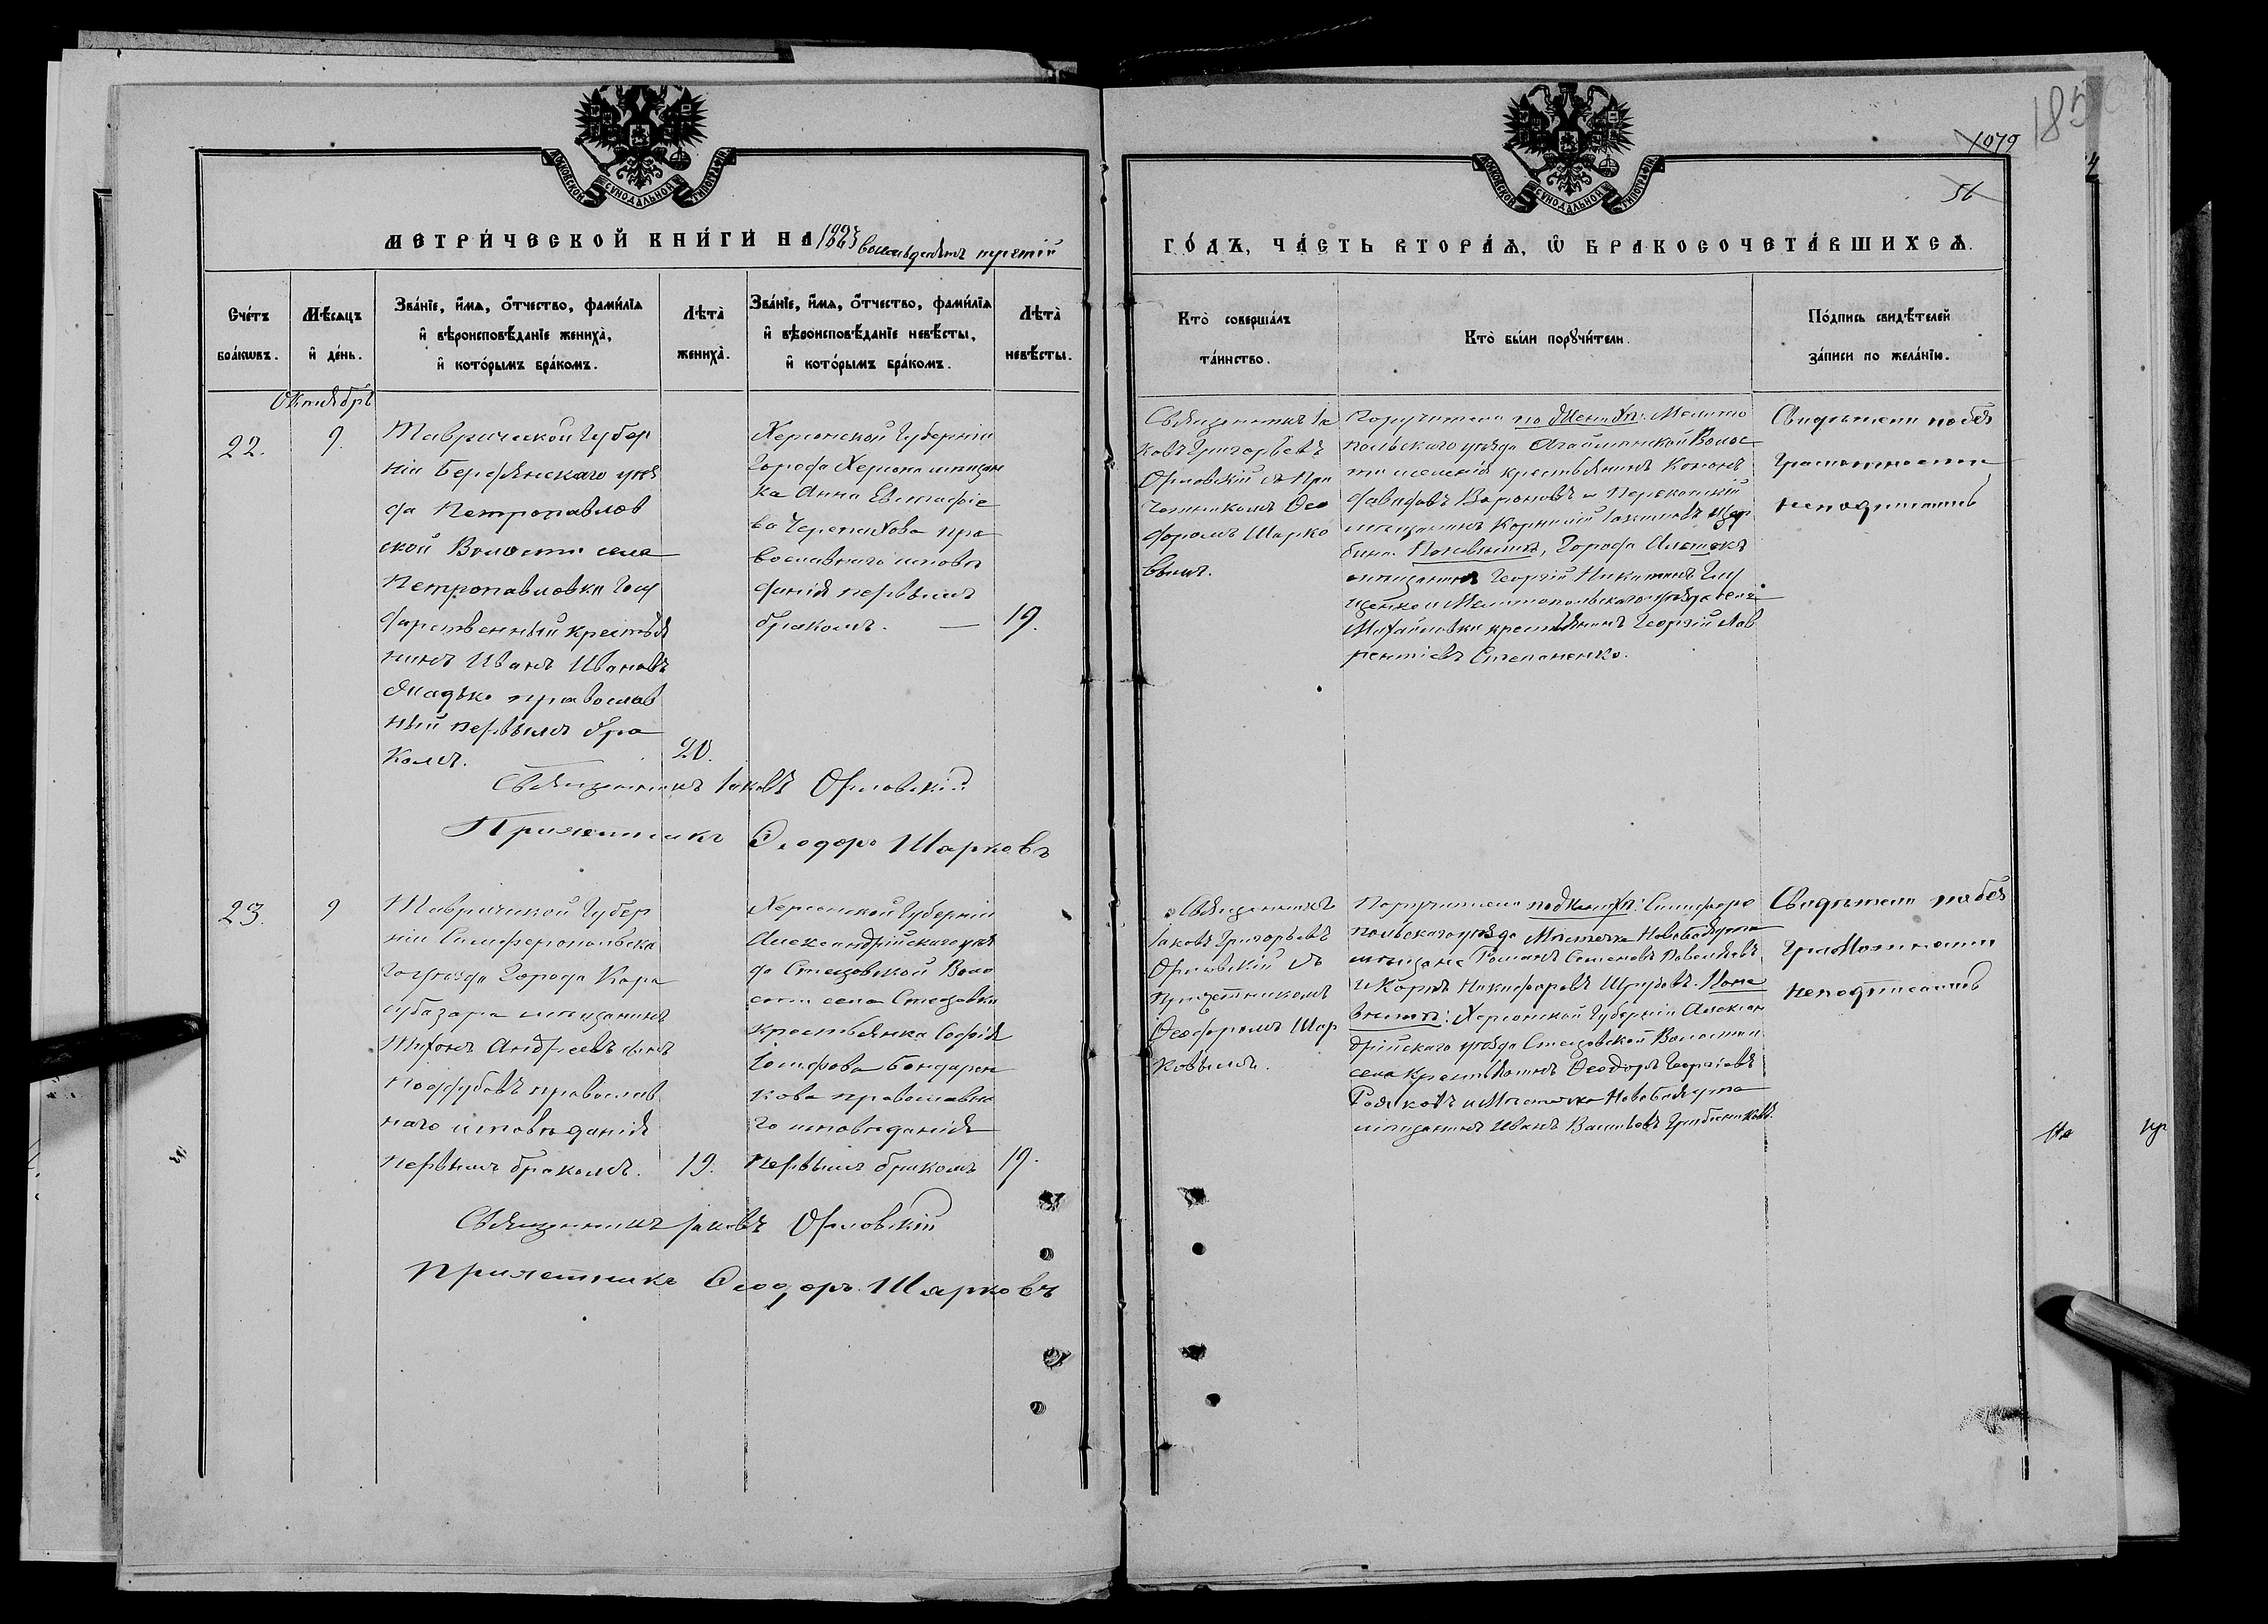 МОСКОВСКОЙ СѴНОДАЛЬНОЙ ТИПОГРАФІИ
МЕТРИ́ЧЕСКОЙ КНИ́ГИ НА 1883 восемьдесятъ третій
Сче́тъ бра́кѡвъ.
Мѣ́сяцъ и҆ де́нь.
Зва́нїе, и҆́мя, о҆́тчество, фами́лїя
и҆ вѣроисповѣ́данїе жениха̀,
и҆ кото́рымъ бра́комъ.
Лѣта̀ жениха̀.
Зва́нїе, и҆́мя, о҆́тчество, фами́лїя
и҆ вѣроисповѣ́данїе невѣ́сты,
и҆ кото́рымъ бра́комъ.
Лѣта̀ невѣ́сты.
Октябрь
22.
9.
Таврической Губер
ніи Бердянскаго уѣз
да Петропавлов
ской Волости села
Петропавловки Госу
дарственный крестья
нинъ Иванъ Ивановъ
православ
ный первымъ бра
комъ.
20.
Херсонской Губерніи
Города Херсона мѣщан
ка Анна Евстафіе
ва Черепахова пра
вославнаго исповѣ
данія первымъ
бракомъ. —
19.
Священникъ Іаковъ Орловскій
Причетникъ Ѳеодоръ Шарковъ
23.
9
Таврической Губер
ніи Симферопольска
го уѣзда Города Кара
субазара мѣщанинъ
Тихонъ Андреевъ сынъ
православ
наго исповѣданія
первымъ бракомъ.
19.
Херсонской Губерніи
Александрійскаго уѣз
да Стецовской Воло
сти села Стецовки
крестьянка Софія
Іосифова Бондарен
кова православна
го исповѣданія
первымъ бракомъ
19.
Священникъ Іаковъ Орловскій
Причетникъ Ѳеодоръ Шарковъ
1850
1079
56
МОСКОВСКОЙ СѴНОДАЛЬНОЙ ТИПОГРАФІИ
ГО́ДЪ, ЧА́СТЬ ВТОРА́Я, Ѡ҆ БРАКОСОЧЕТА́ВШИХСЯ.
Кто̀ соверша́лъ
та́инство.
Кто̀ бы́ли порꙋчи́тели.
По́дпись свидѣ́телей
за́писи по жела́нїю.
Священникъ Іа
ковъ Григорьевъ
Орловскій съ При
четникомъ Ѳео
доромъ Шарко
вымъ.
Поручители по Женихѣ: Мелито
польскаго уѣзда Агайманской Волос
ти селенія крестьянинъ Кононъ
Давидовъ Вороновъ и Перекопскій
мѣщанинъ Корнилій
По невѣстѣ, Города Алешекъ
мѣщанинъ Георгій Никитинъ
и Мелитопольскаго уѣзда села
Михайловки крестьянинъ Георгій Лав
рентіевъ Степаненко.
Свидѣтели по без
грамотности
неподписались
Священникъ
Іаковъ Григорьевъ
Орловскій съ
Причетникомъ
Ѳеодоромъ Шар
ковымъ.
Поручители по Женихѣ: Симферо
польскаго уѣзда Мѣстечка
мѣщане Романъ Семеновъ
Никифоровъ По не
вѣстѣ: Херсонской Губерніи Алексан
дрійскаго уѣзда Стецовской Волости
села крестьянинъ Ѳеодоръ Георгіевъ
и Мѣстечка
мѣщанинъ Иванъ Васильевъ
Свидѣтели по без
грамотности
неподписались